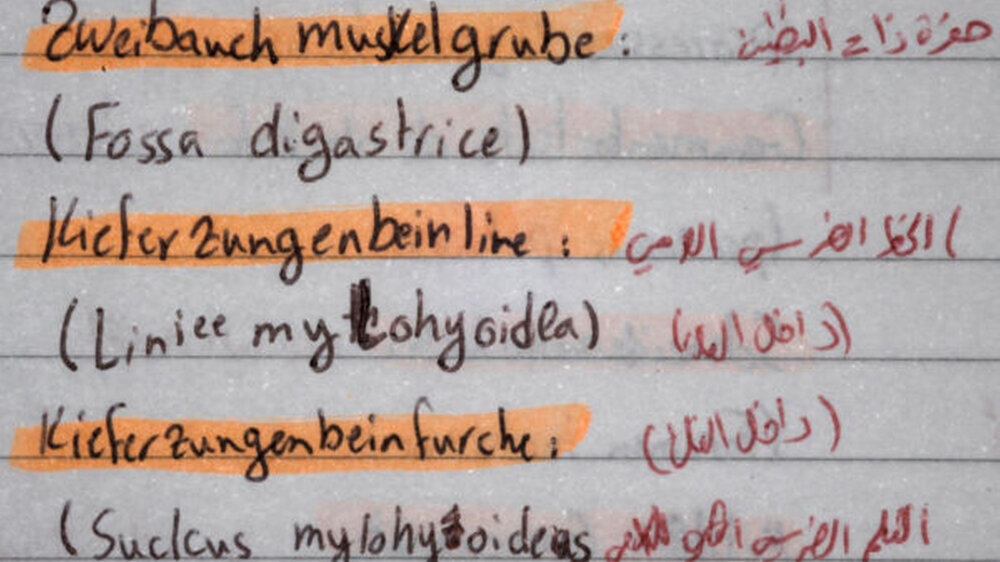 Zweibauch muskelgrube : حفرة ذات البطين
(Fossa digastrice)
Kieferzungenbeinline : الخط الضرسي اللامي (
(Liniee mylohyoidea) (داخل الفك)
Kieferzungenbeinfurche : (داخل الفك)
(Suclcus mylohyoideus التلم الضرسي